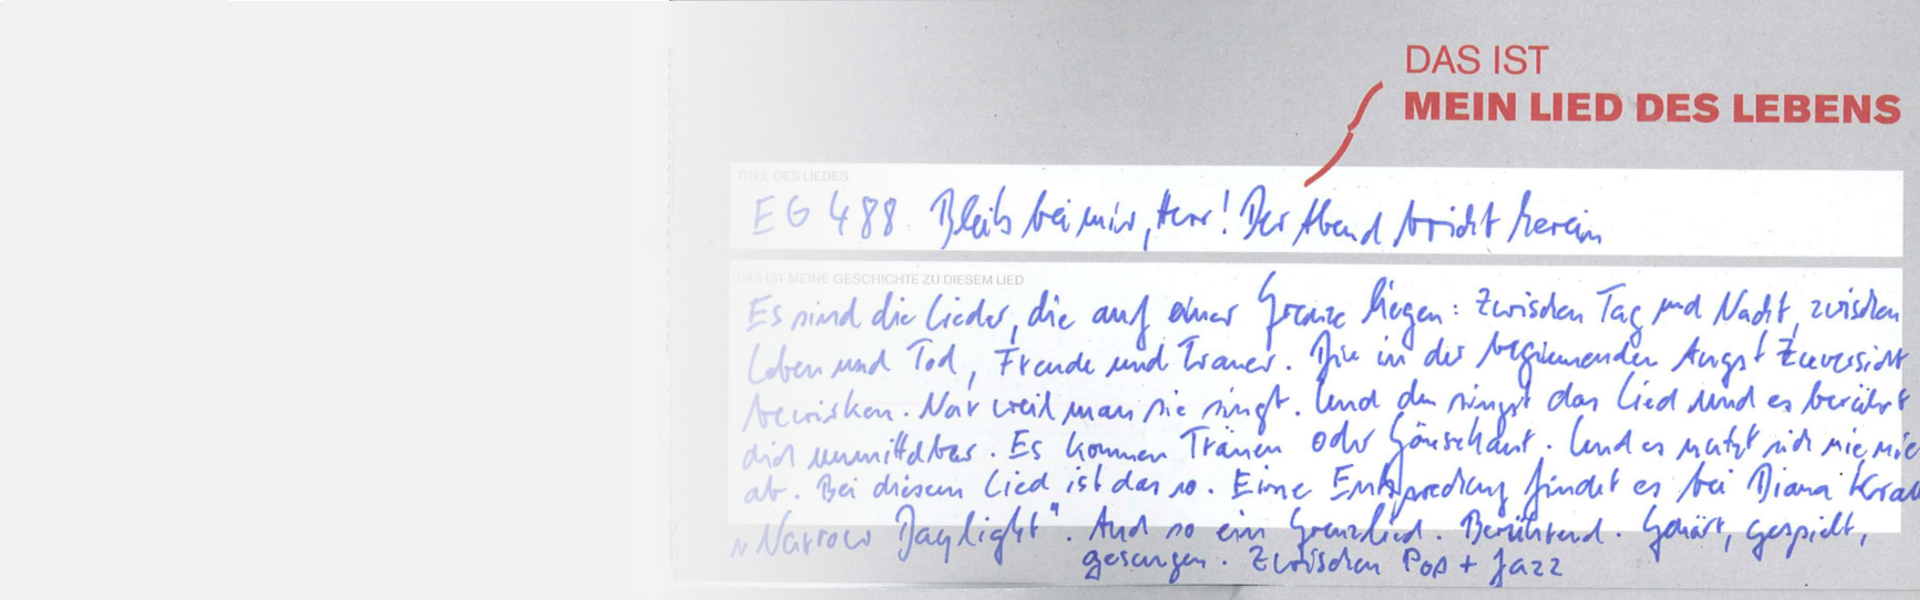 DAS IST
MEIN LIED DES LEBENS
TITEL DES LIEDES
EG 488 Bleib bei mir, Herr! Der Abend bricht herein
DAS IST MEINE GESCHICHTE ZU DIESEM LIED
Es sind die Lieder, die auf einer Grenze liegen: Zwischen Tag und Nacht, zwischen
Leben und Tod, Freude und Trauer. Die in der beginnenden Angst Zuversicht
bewirken. Nur weil man sie singt. Und du singst das Lied und es berührt
dich unmittelbar. Es kommen Tränen oder Gänsehaut. Und es nutzt sich nie
ab. Bei diesem Lied ist das so. Eine Entsprechung findet es bei Diana Krall
„Narrow Daylight". Auch so ein Grenzlied. Berührend. Gehört, gespielt,
gesungen. Zwischen Pop + Jazz